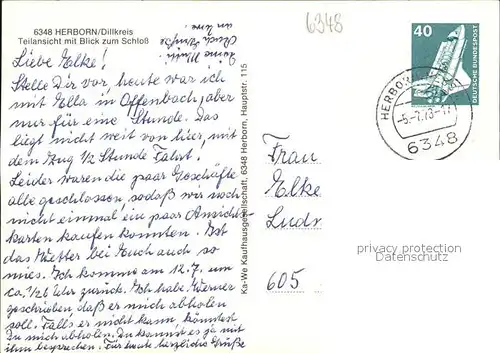 6348 HERBORN/Dillkreis
Teilansicht mit Blick zum Schloß
6348
Liebe Elke!
Stelle Dir vor, heute war ich
mit Ella in Offenbach, aber
nur für eine Stunde. Das
liegt nicht weit von hier, mit
dem Zug 1/2 Stunde Fahrt.
Leider waren die paar Geschäfte
alle geschlossen, sodaß wir noch
nicht einmal ein paar Ansicht-
karten kaufen konnten. Ist
das Wetter bei Euch auch so
mies. Ich komme am 12.7. um
ca. 1/2 6 Uhr zurück. Ich habe Werner
geschrieben, daß er mich abholen
soll. Falls er nicht kann, könntest
Du mich abholen. Du kannst es ja mit
ihm besprechen. Für heute herzliche Grüße
Deine Mutti
Auch Grüße
an
Ka-We Kaufhausgesellschaft, 6348 Herborn, Hauptstr. 115
40
DEUTSCHE BUNDESPOST
HERBORN
-5.-7.78-
6348
Frau
Elke
Ludr
605
privacy protection
Datenschutz